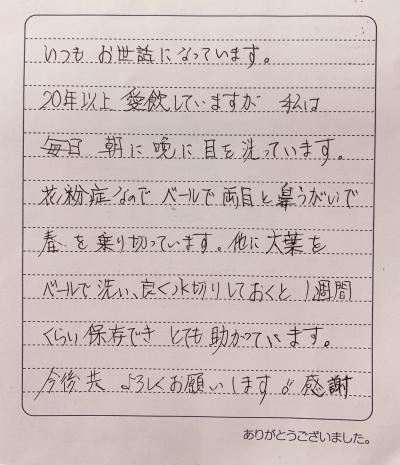 いつも お世話になっています。
20年以上 愛飲していますが 私は
毎日 朝に 晩に 目を洗っています。
花粉症なので ベールで 両目と鼻うがいで
春を乗り切っています。他に 大葉を
ベールで洗い、良く水切りしておくと 1週間
くらい 保存でき とても 助かっています。
今後共 よろしくお願いします 感謝
ありがとうございました。